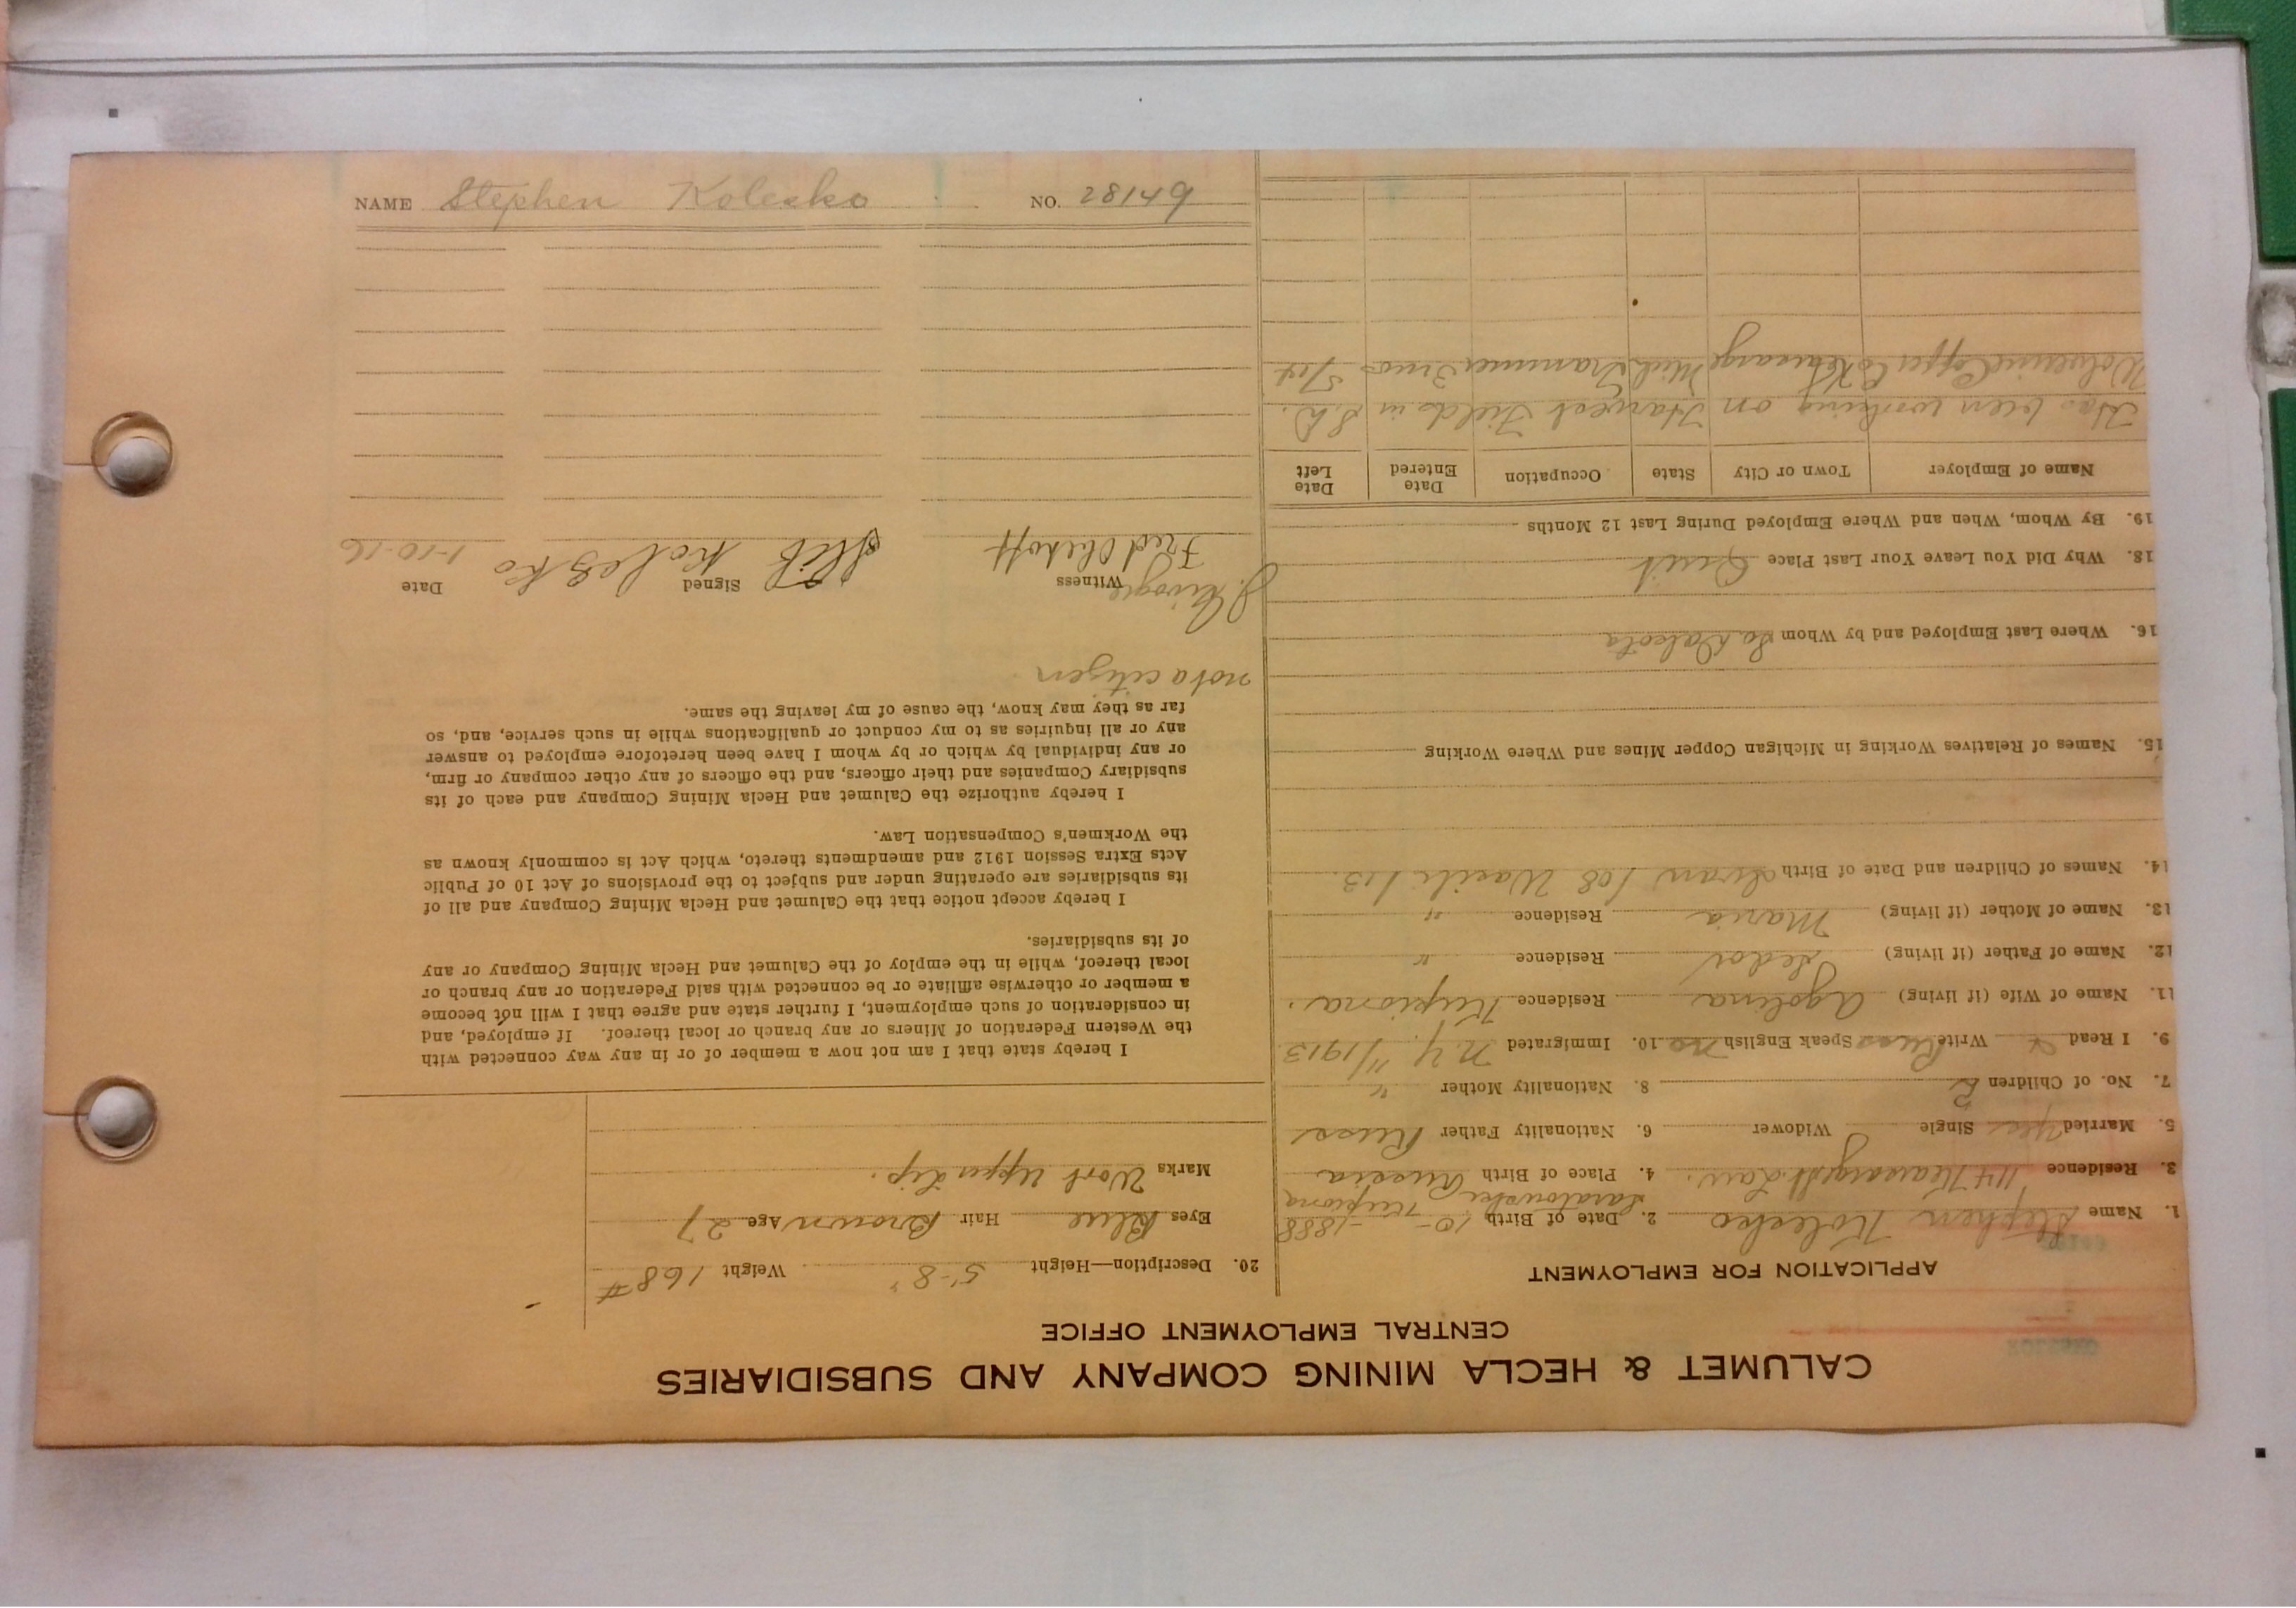 CALUMET & HECLA MINING COMPANY AND SUBSIDIARIES
CENTRAL EMPLOYMENT OFFICE
APPLICATION FOR EMPLOYMENT
1. Name Stephen Kolesko 2. Date of Birth 10- -1888
3. Residence 114 Kearsarge St. Laur. 4. Place of Birth Russia
5. Married yes Single Widower 6. Nationality Father Russ
7. No. of Children 2 8. Nationality Mother "
9. I Read Write Russ Speak English no 10. Immigrated N.Y. 11/1913
11. Name of Wife (if living) Agolina Residence Kupiona.
12. Name of Father (if living) Fedor Residence "
13. Name of Mother (if living) Maria Residence "
14. Names of Children and Date of Birth Iwan /08 Wasili /13.
15. Names of Relatives Working in Michigan Copper Mines and Where Working
16. Where Last Employed and by Whom So Dakota
18. Why Did You Leave Your Last Place Quit
19. By Whom, When and Where Employed During Last 12 Months
Name of Employer Town or City State Occupation Date Entered Date Left
Has been working on Harvest Fields in S.D.
Wolverine Copper Co Kearsarge Mich Trammer 3 mos
20. Description—Height 5'-8" Weight 168#
Eyes Blue Hair Brown Age 27
Marks Wort upper Lip.
I hereby state that I am not now a member of or in any way connected with
the Western Federation of Miners or any branch or local thereof. If employed, and
in consideration of such employment, I further state and agree that I will not become
a member or otherwise affiliate or be connected with said Federation or any branch or
local thereof, while in the employ of the Calumet and Hecla Mining Company or any
of its subsidiaries.
I hereby accept notice that the Calumet and Hecla Mining Company and all of
its subsidiaries are operating under and subject to the provisions of Act 10 of Public
Acts Extra Session 1912 and amendments thereto, which Act is commonly known as
the Workmen's Compensation Law.
I hereby authorize the Calumet and Hecla Mining Company and each of its
subsidiary Companies and their officers, and the officers of any other company or firm,
or any individual by which or by whom I have been heretofore employed to answer
any or all inquiries as to my conduct or qualifications while in such service, and, so
far as they may know, the cause of my leaving the same.
not a citizen
Witness Signed Date
Fred Obenhoff Kolesko 1-10-16
NAME Stephen Kolesko NO. 28149